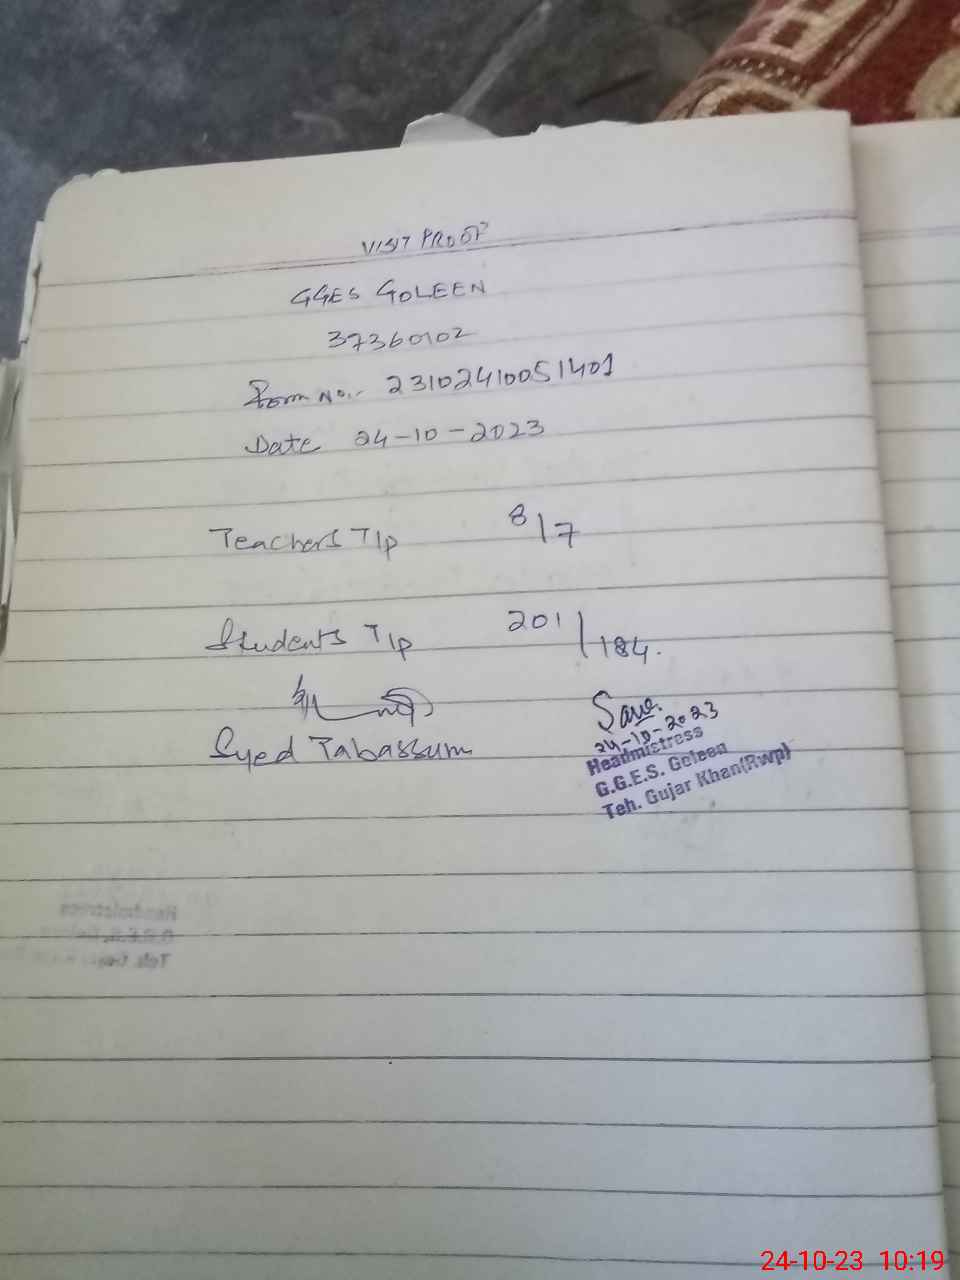 VISIT PROOF
GGES GOLEEN
37360102
Form No:- 23102410051401
Date 24-10-2023
Teachers T/p 8/7
Students T/p 201/184.
Syed Tabassum
24-10-2023
Headmistress
G.G.E.S. Goleen
Teh. Gujar Khan(Rwp)
Headmistress
G.G.E.S.
Teh.
24-10-23 10:19